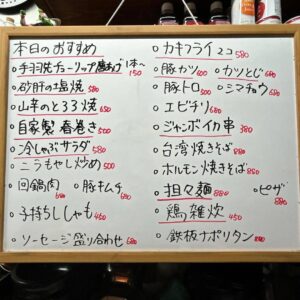 本日のおすすめ
手羽先チューリップ唐あげ 1本〜150
砂肝の塩焼 580
山芋のとろろ焼 650
自家製 春巻き 500
冷しゃぶサラダ 580
ニラもやし炒め 500
回鍋肉 680
豚キムチ 680
子持ちししゃも 450
ソーセージ盛り合わせ 680
カキフライ 2コ 580
豚カツ 600
カツとじ 680
豚トロ 500
シマチョウ 680
エビチリ 680
ジャンボイカ串 380
台湾焼きそば 880
ホルモン焼きそば 880
担々麺 880
ピザ 680
鶏雑炊 450
鉄板ナポリタン